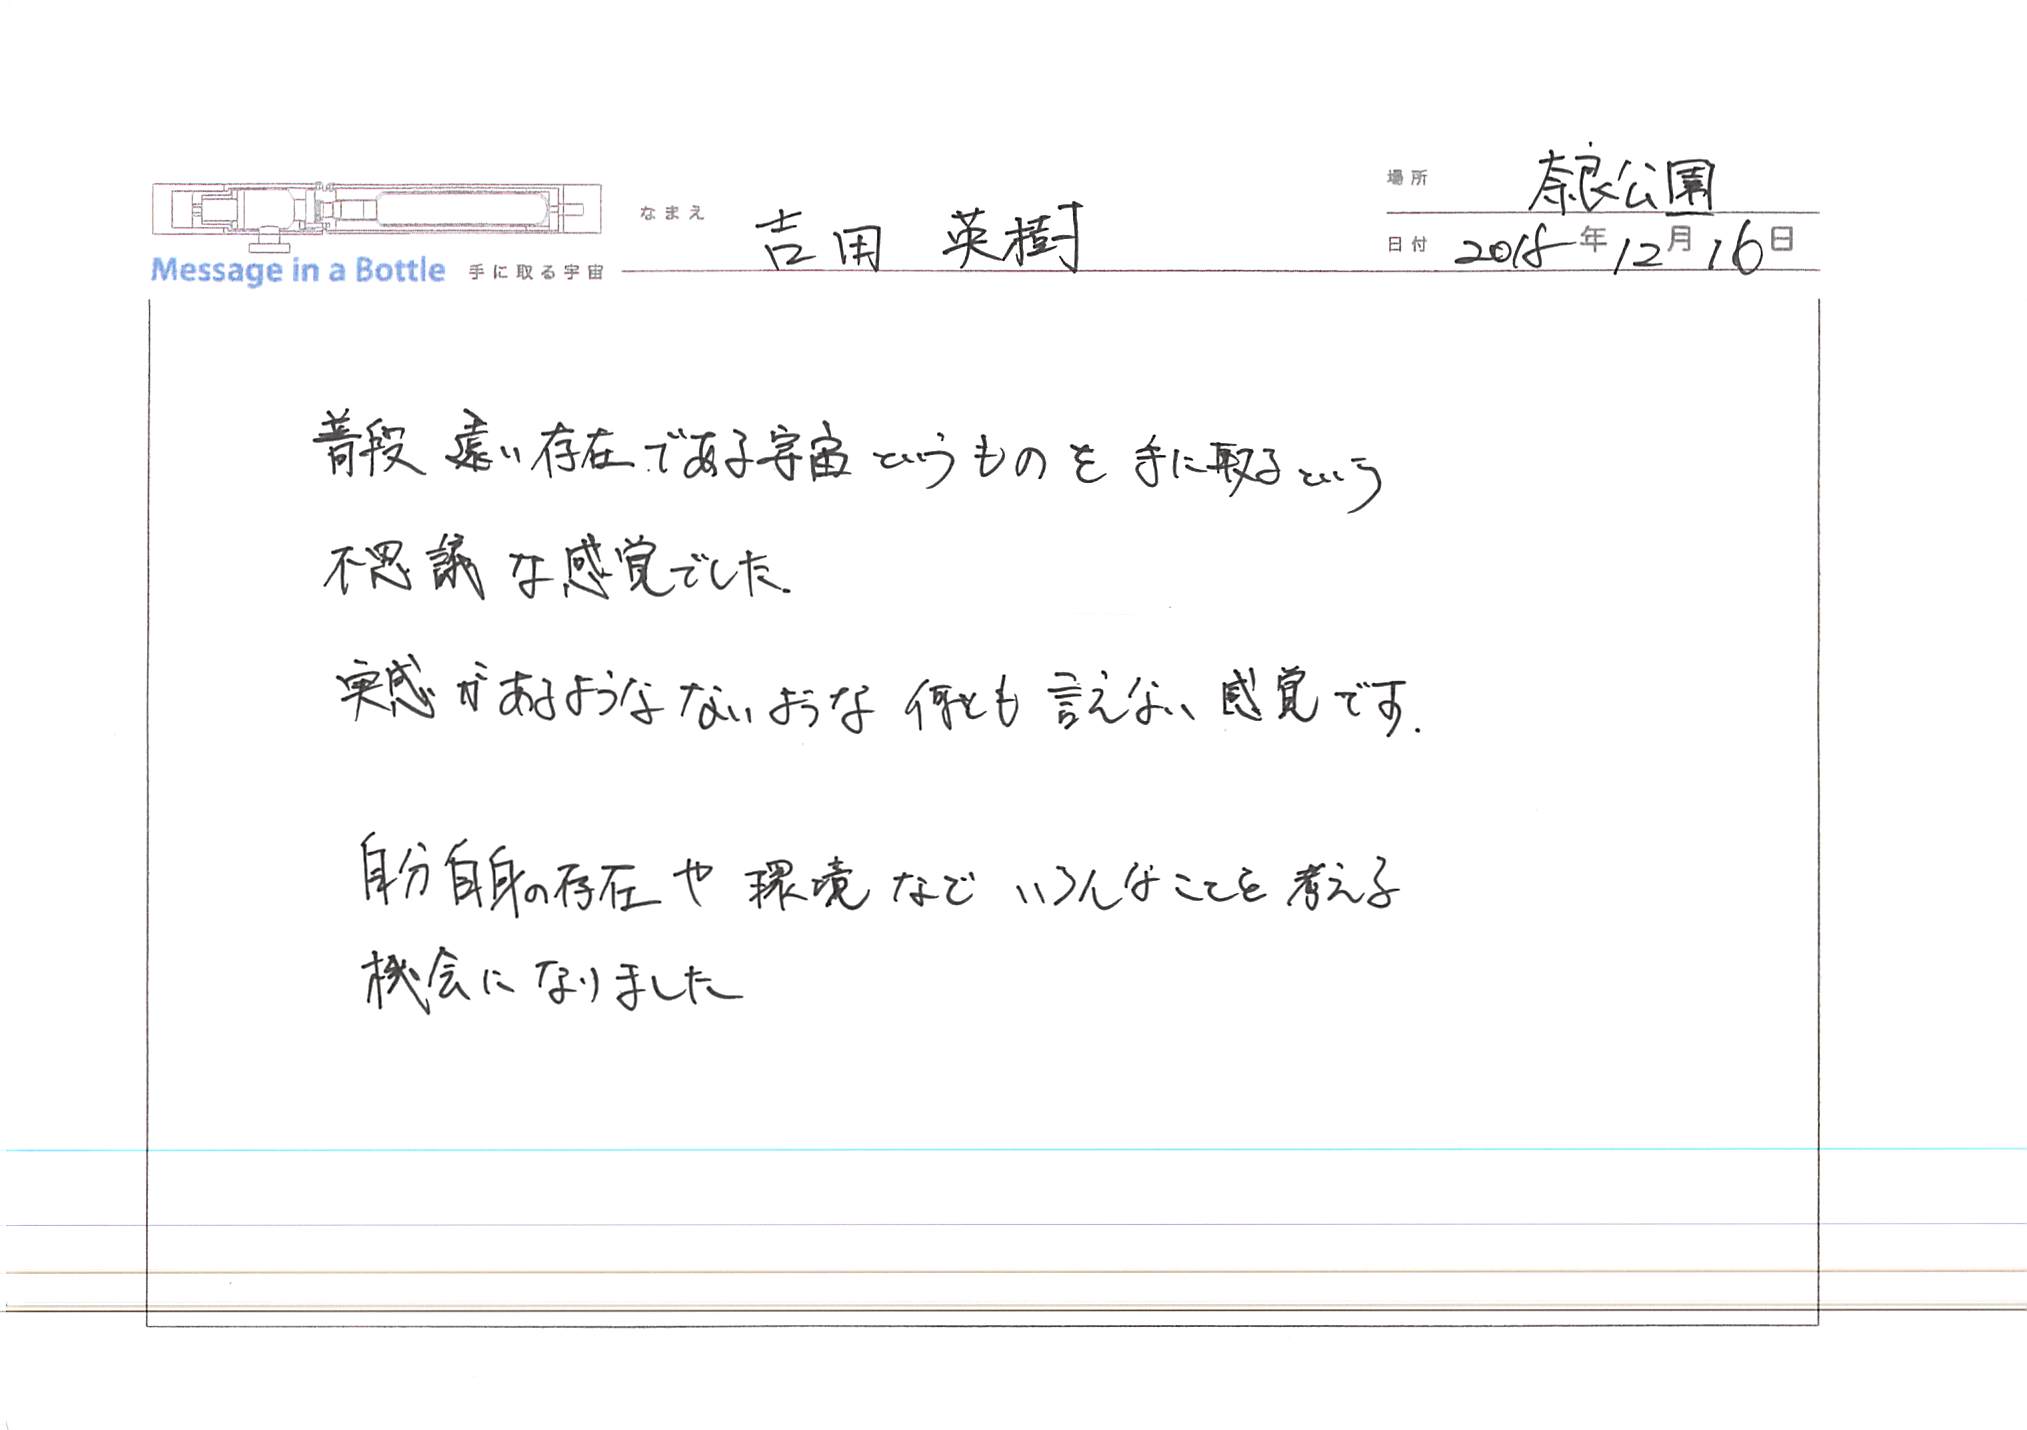 場所 奈良公園
なまえ 吉田 英樹
日付 2018年12月16日
Message in a Bottle 手に取る宇宙
普段 遠い存在である宇宙というものを手に取るという
不思議な感覚でした.
実感があるようなないような何とも言えない感覚です.
自分自身の存在や環境などいろんなことを考える
機会になりました